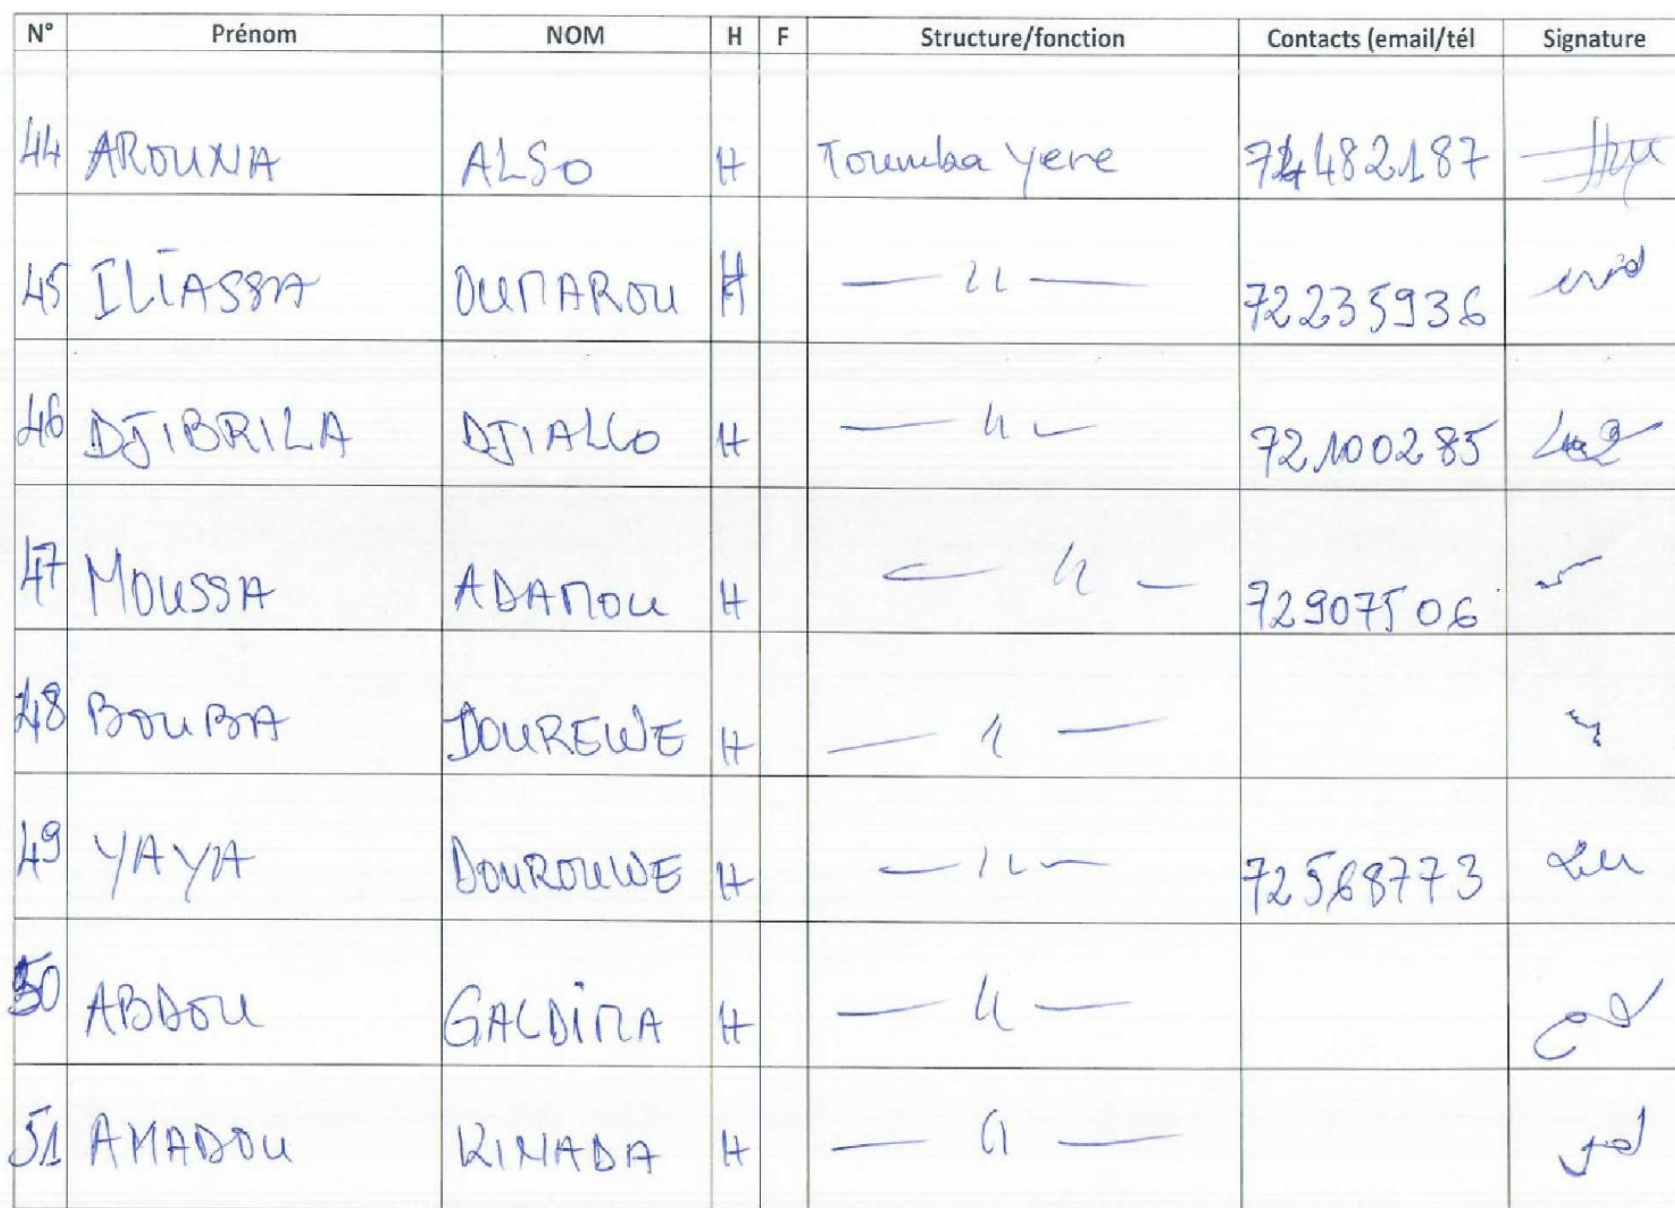 N° Prénom NOM H F Structure/fonction Contacts (email/tél Signature
44 AROUNA ALSO H Toumba yere 72482187
45 ILIASSA OUMAROU H — " — 72235936
46 DJIBRILA DJIALLO H — " — 72100285
47 MOUSSA ADAMOU H — " — 72907506
48 BOUBA DOUREWE H — " —
49 YAYA DOUROUWE H — " — 72568773
50 ABDOU GALDIMA H — " —
51 AMADOU KINADA H — " —